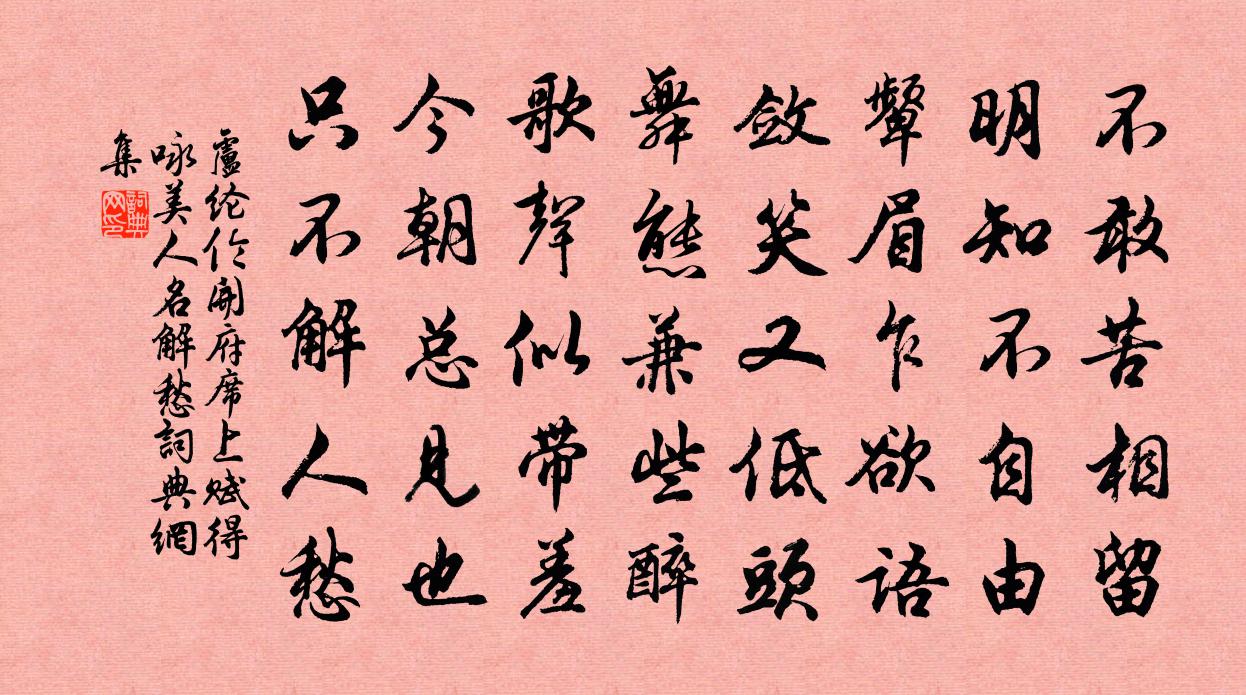 不敢苦相留
明知不自由
顰眉乍欲语
敛笑又低頭
舞態兼些醉
歌聲似带羞
今朝总見也
只不解人愁
盧纶伦開府席上赋得
咏美人名解愁詞典網
集
詞典網印